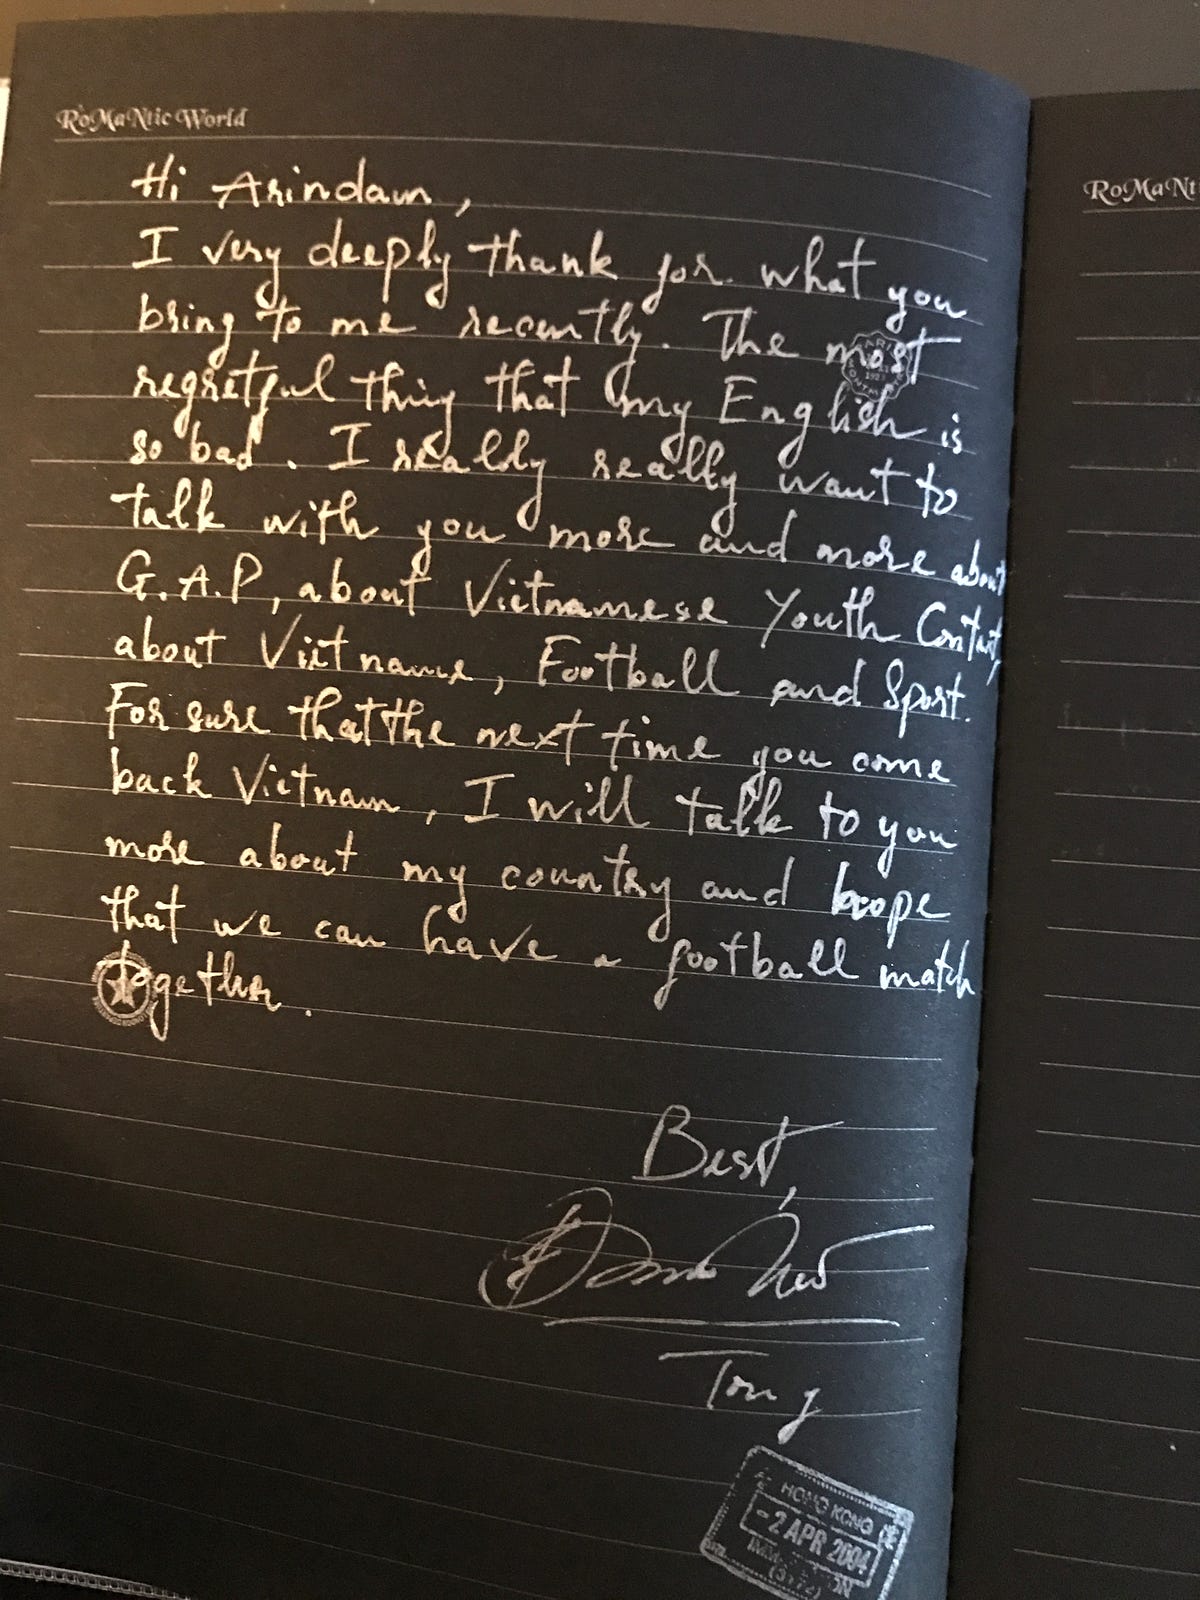 RoMaNtic World
Hi Arindam,
I very deeply thank for what you
bring to me recently. The most
regretful thing that my English is
so bad. I really really want to
talk with you more and more about
G.A.P, about Vietnamese Youth Contact,
about Vietname, Football and Sport.
For sure that the next time you come
back Vietnam, I will talk to you
more about my country and hope
that we can have a football match
together.
Best,
Tony
HONG KONG
-2 APR 2004
RoMaNt